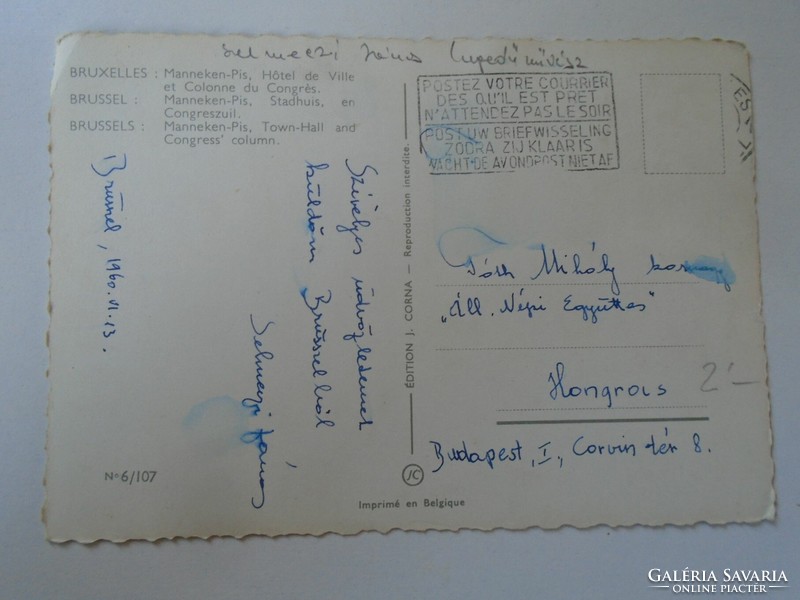 Selmeczi János (hegedűművész
BRUXELLES : Manneken-Pis, Hôtel de Ville
et Colonne du Congrès.
BRUSSEL : Manneken-Pis, Stadhuis, en
Congreszuil.
BRUSSELS : Manneken-Pis, Town-Hall and
Congress' column.
Brüssel, 1960. VI. 13.
Szivélyes üdvözletemet
küldöm Brüsselből
Selmeczi János
N° 6/107
ÉDITION J. CORNA — Reproduction interdite.
JC
Imprimé en Belgique
POSTEZ VOTRE COURRIER
DES QU'IL EST PRET
N'ATTENDEZ PAS LE SOIR
POST UW BRIEFWISSELING
ZODRA ZIJ KLAAR IS
WACHT DE AVONDPOST NIET AF
Tóth Mihály
„Áll. Népi Együttes"
Hongrois
2'—
Budapest, I., Corvin tér 8.
GALÉRIA SAVARIA
ONLINE PIACTÉR